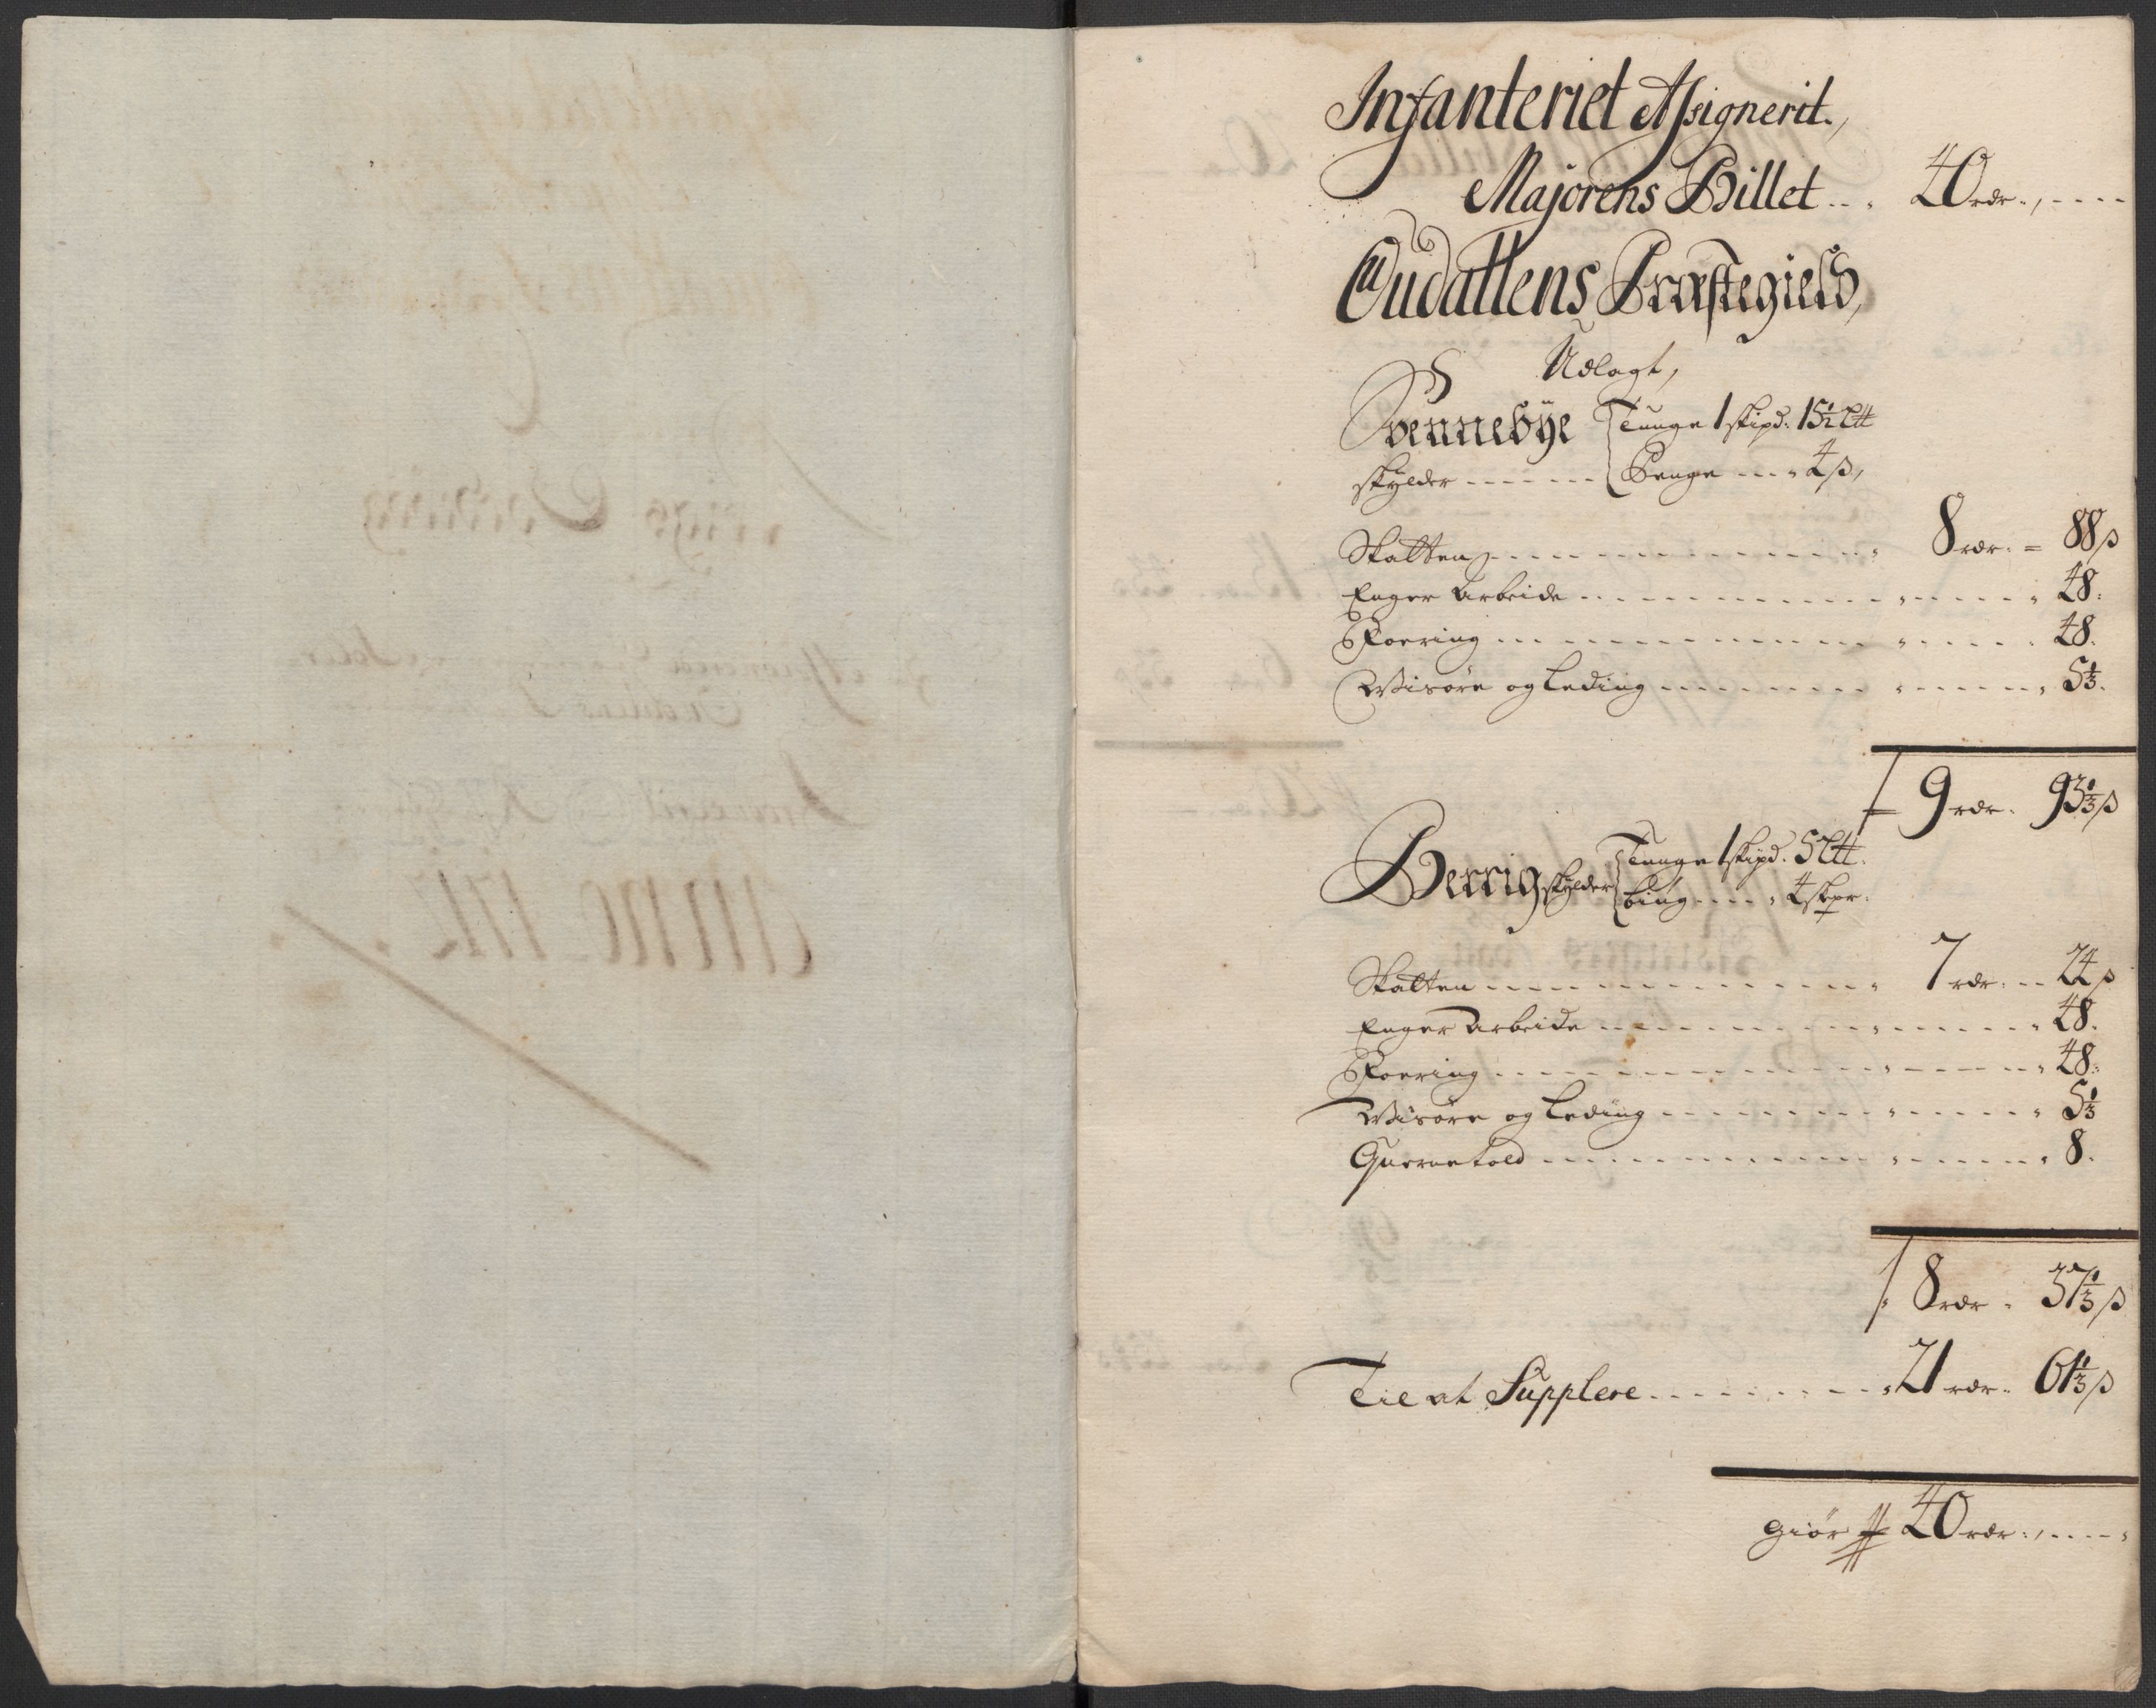 Infanteriet Assignerit.,
Majorens Billet . . . 40 rdr. , - - - -
Oudallens Præstegield,
Udlagt,
Svennebÿe Tunge 1 skipd: 15½ L℔
skylder - - - - - - Penge - - - 4 ß,
Skatten - - - - - - 8 rdr. = 88 ß
Enger Arbeide - - - - - - 48:
Foering - - - - - - 48.
Wisøre og Leding - - - - - - 5⅓.
9 rdr. 93⅓ ß
Berrig skylder Tunge 1 skipd. 5 L℔.
bÿg - - - - 4 skpr.
Skatten - - - - - - 7 rdr: - - 24 ß
Enger Arbeide - - - - - - 48.
Foering - - - - - - 48:
Wisøre og Leding - - - - - - 5⅓
Querne told - - - - - - 8.
8 rdr. 37⅓ ß
Til at Supplere - - - - - - 21 rdr. 61⅓ ß
giør 40 rdr: , - - - -